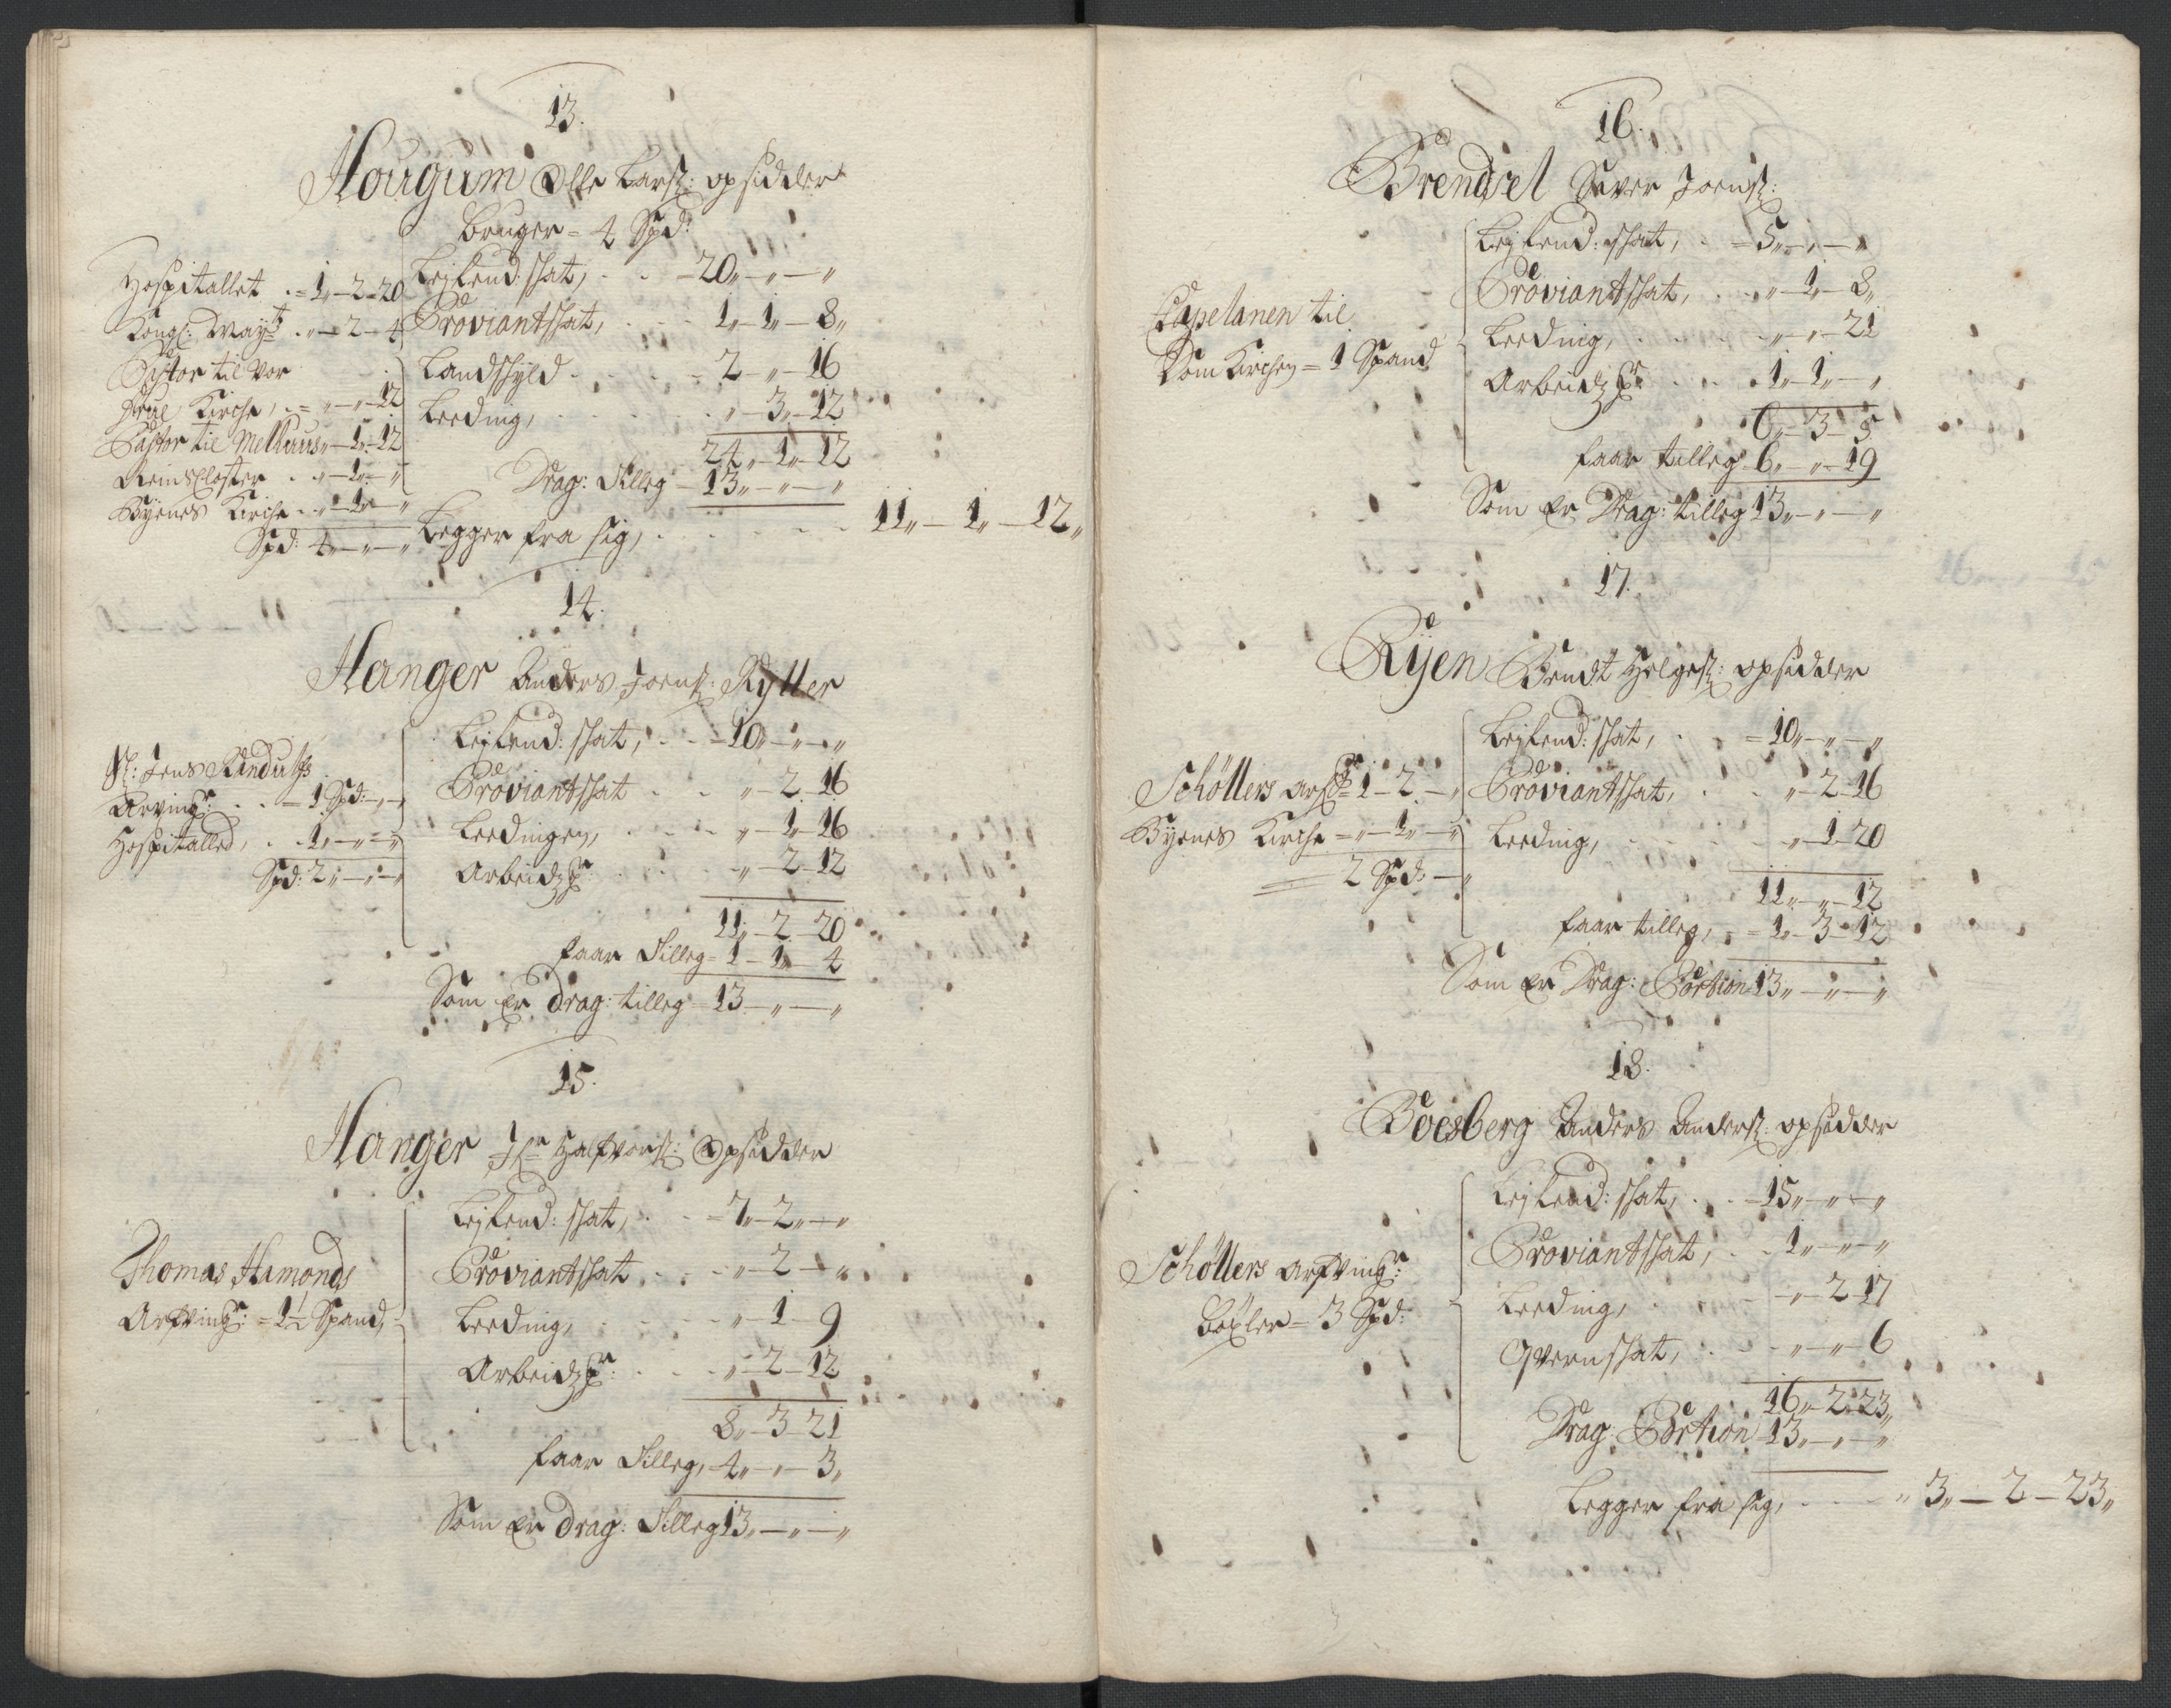 13.
Hougum Olle Larsz: opsidder
bruger = 4 Spd:
Hospitallet . = 1„ - 2 - 20
Kongl: Mayt: . „ - 2 - 4
Pastor til Vor
Frue Kirche, . = „ - „ - 12
Pastor til Melhuus „ - 1 - 12
Reins Closter . . „ - 1„ - „
Byenes Kirche . . „ - 1„ - „
Spd: 4„ - „ - „
Leylend: skat, . . - 20„ - „ - „
Proviantskat, . . . 1„ - 1„ - 8„
Landskyld . . . . . 2 - „ - 16
Leeding, . . . . . „ - 3„ - 12
24„ - 1„ - 12
Drag: Tilleg - 13„ - „ - „
Legger fra sig, . . . . . . 11„ - 1„ - 12„
14.
Hanger Anders Joensz: Rytter
Sl: Jens Randulfs
Arving: . . - 1 Spd: - „ - „
Hospitalled, . . 1„ - „ - „
Spd: 2„ - „ - „
Leylend: skat, . . - 10„ - „ - „
Proviantskat . . „ - 2 - 16
Leedingen, . . . „ - 1„ - 16
Arbeidzp: . . . „ - 2 - 12
11„ - 2 - 20
faar Tilleg - 1 - 1„ - 4
Som er Drag: tilleg - 13 - „ - „
15.
Hanger Jfr Halfvorsz: Opsidder
Thomas Hamonds
Arfving: = 1½ Spand,
Leylend: skat, . . - 7„ - 2„ - „
Proviantskat . . . „ - 2 - „
Leeding, . . . . „ - 1 - 9
Arbeidzp: . . . „ - 2 - 12
8„ - 3 - 21
faar Tilleg, - 4„ - „ - 3„
Som er Drag: Tilleg 13„ - „ - „
16.
Brendsel Siver Joensz:
Capelanen til
Dom Kirchen = 1 Spand
Leylend: skat, . - 5„ - „ - „
Proviantskat, . . „ - 1„ - 8„
Leeding, . . . . „ - „ - 21
Arbeidzp: . . . 1„ - 1„ - „
6„ - 3 - 5
faar tilleg 6„ - „ - 19
Som er Drag: tilleg 13„ - „ - „
17.
Rijen Bendt Helgesz: opsidder
Schöllers arf: = 1 - 2 - „
Byenes Kirche = „ - 1„ - „
2 Spd: - „
Leylend: skat, . . = 10„ - „ - „
Proviantskat, . . „ - 2 - 16
Leeding, . . . . „ - 1 - 20
11„ - „ - 12
faar tilleg, = 1„ - 3 - 12
Som er Drag: Portion 13„ - „ - „
18.
Boesberg Anders Andersz: opsidder
Schöllers arfving:
böxler = 3 Spd:
Leylend: skat, . . - 15„ - „ - „
Proviantskat, . . 1„ - „ - „
Leeding, . . . - „ - 2 - 17
Qvernskat, . . - „ - „ - 6
16„ - 2 - 23„
Drag: Portion 13„ - „ - „
Legger fra sig, . . . . „ 3„ - 2 - 23„